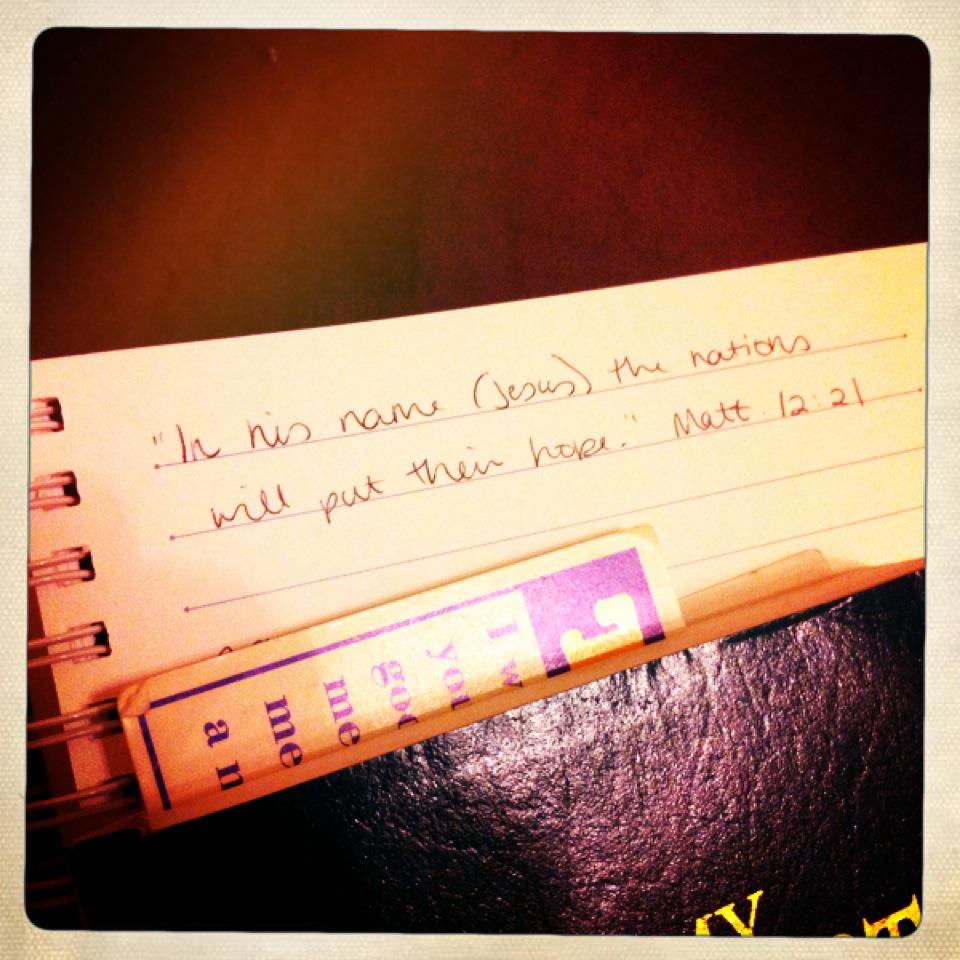 "In his name (Jesus) the nations
will put their hope." Matt 12:21
I w
you
god
me
me
an